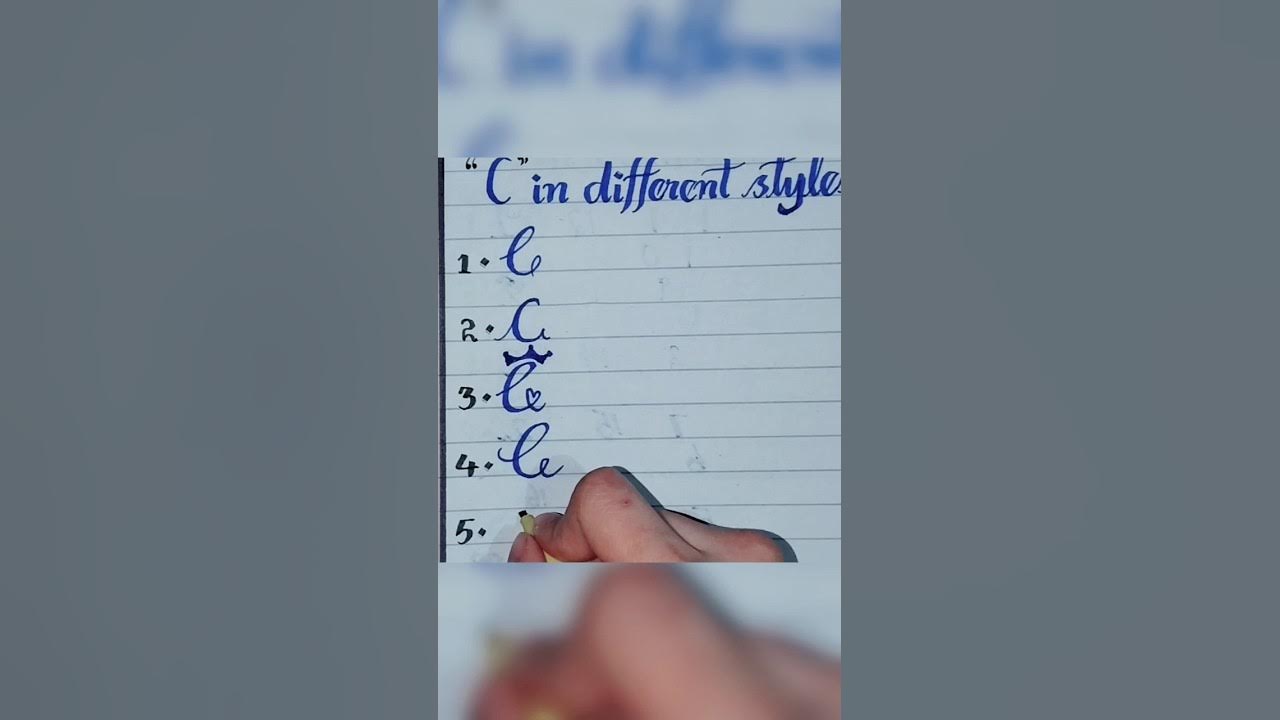 "C" in different styles
1. C
2. C
3. C
4. C
5.